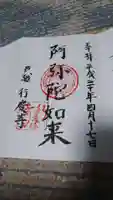 奉拝 平成三十年四月十七日
阿弥陀如来
戸越 行慶寺